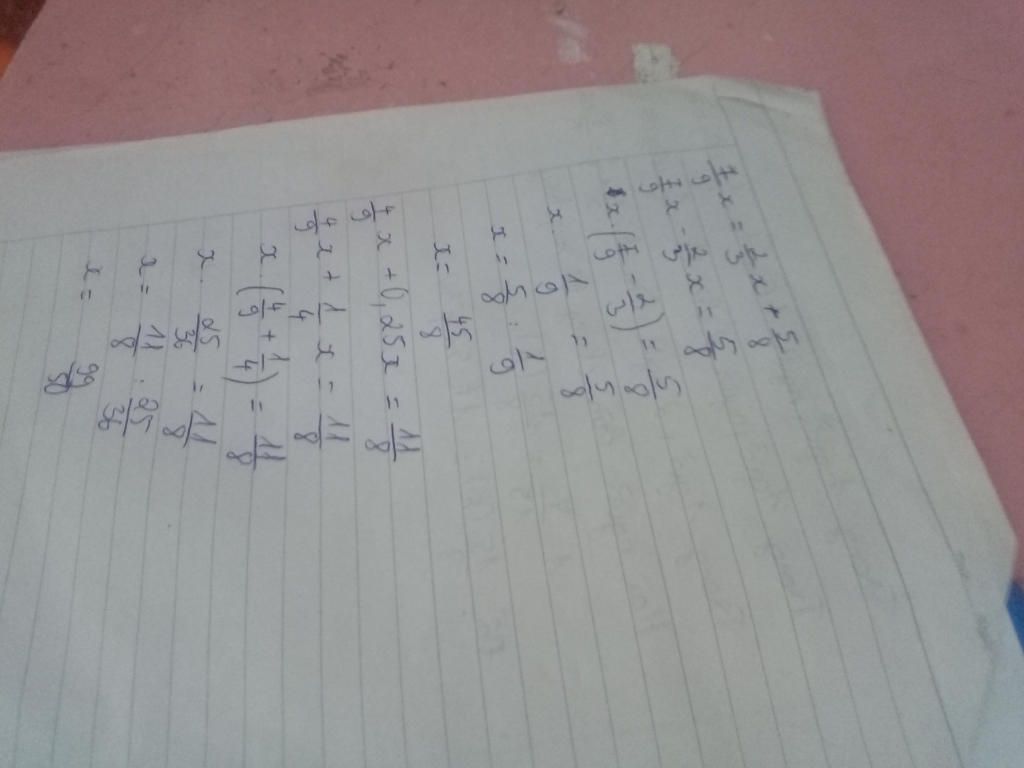 7/9 x = 2/3 x + 5/8
7/9 x - 2/3 x = 5/8
x · (7/9 - 2/3) = 5/8
x · 1/9 = 5/8
x = 5/8 : 1/9
x = 45/8
4/9 x + 0,25x = 11/8
4/9 x + 1/4 x = 11/8
x · (4/9 + 1/4) = 11/8
x · 25/36 = 11/8
x = 11/8 : 25/36
x = 99/50